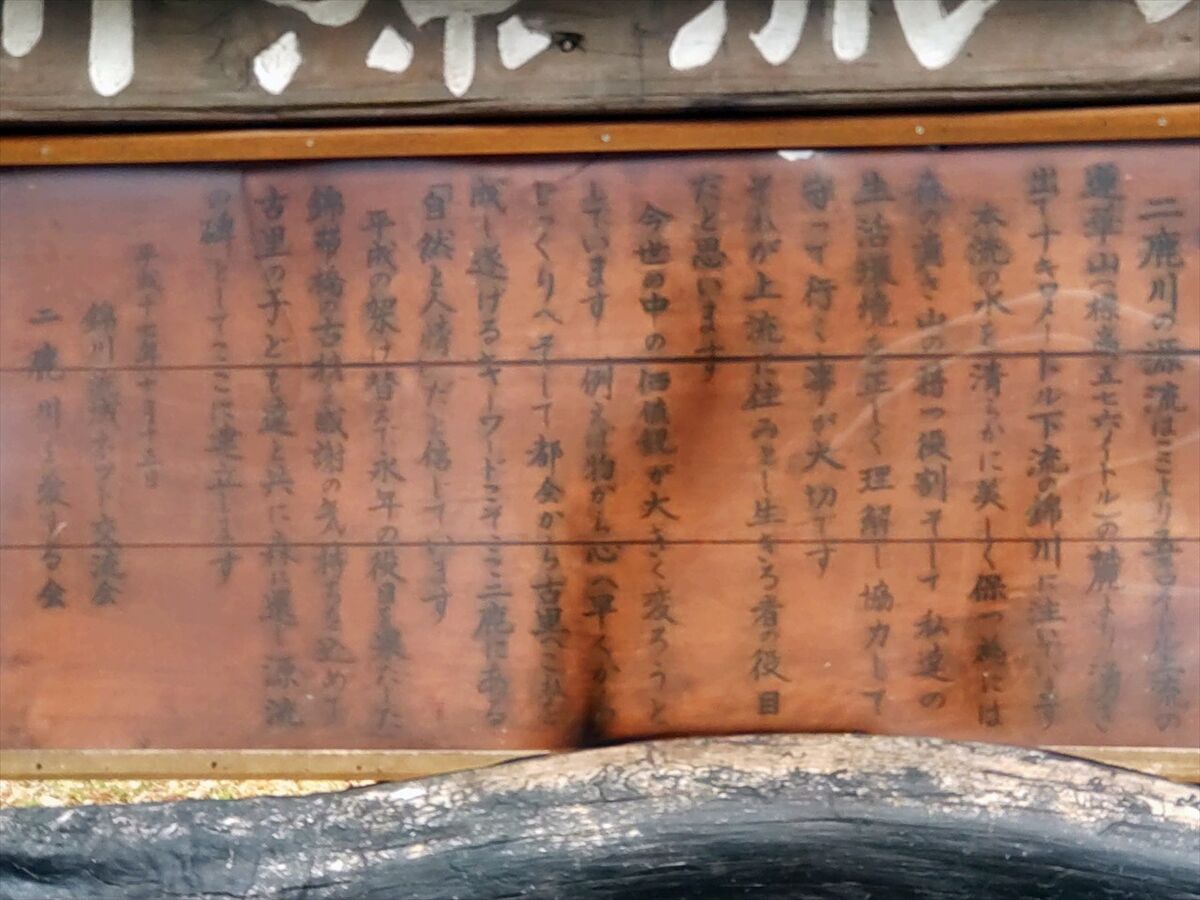 二鹿川の源流はここより
蓮華山(標高五七六メートル)の麓より湧き
出て十キロメートル下流の錦川に注いでいます
本流の水を清らかに美しく保つ為には
森の 山の持つ役割そして私達の
生活環境を正しく理解し協力して
守って行く事が大切です
それが上流に住みそし生きる者の役目
だと思います
今世の中の価値観が大きく変ろうと
しています 例えば物から心へ早くから
じっくりへそして都会から古里へ
成し遂げるキーワードこそここ二鹿にある
「自然と人情」だと信じています
平成の架け替えで永年の役目を果たした
錦帯橋の古材に感謝の気持ちを込めて
古里の子ども達と共に森に還し源流
の碑としてここに建立します
平成十 年十 月十 日
錦川 交流会
二鹿川を 会